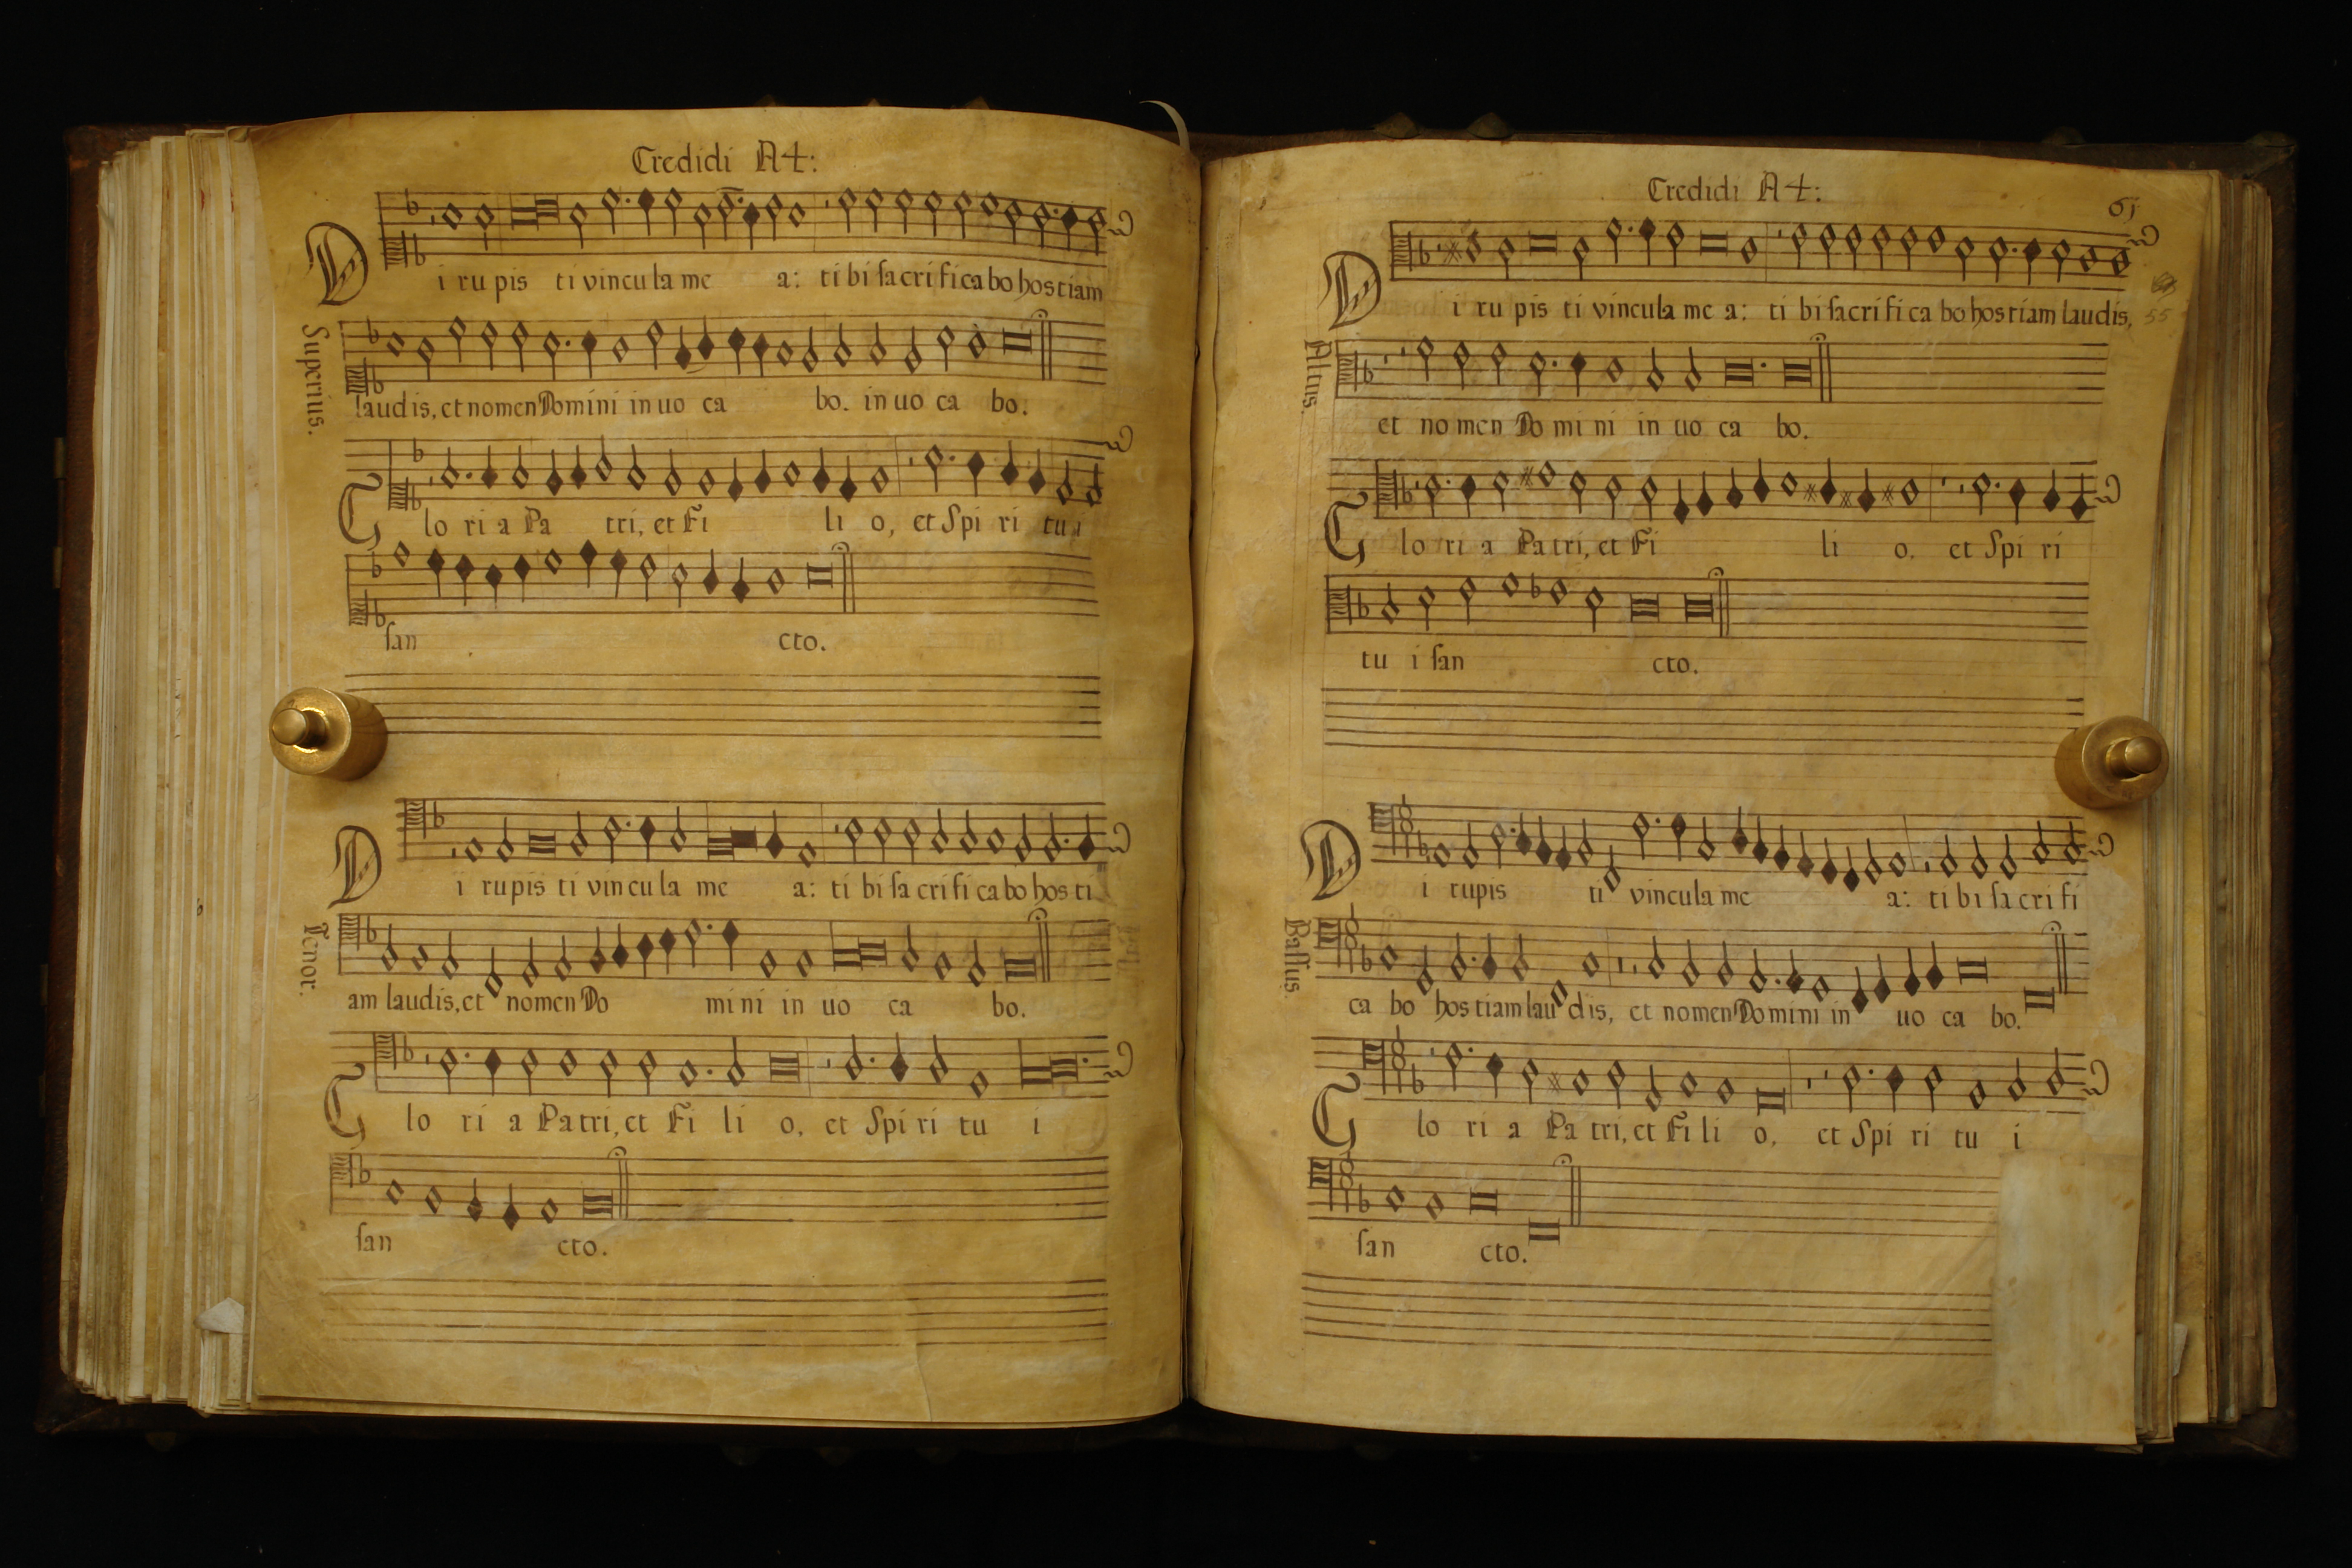 Credidi A4:
Di ru pis ti vincula me a: ti bi sacrificabo hostiam
Superius.
laudis, et nomen Domini in uo ca bo. in uo ca bo.
Glo ri a Pa tri, et Fi li o, et Spi ri tu i
san cto.
Di rupis ti vin cu la me a: ti bi sa cri fi ca bo hos ti
Tenor.
am laudis, et nomen Do mi ni in uo ca bo.
Glo ri a Pa tri, et Fi li o, et Spi ri tu i
san cto.
Credidi A4:
61
Di ru pis ti vincula me a: ti bi sacri fi ca bo hostiam laudis,
55
Altus.
et no men Do mi ni in uo ca bo.
Glo ri a Patri, et Fi li o, et Spi ri
tu i san cto.
Di rupis ti vincula me a: ti bi sa cri fi
Bassus.
ca bo hostiam lau dis, et nomen Domini in uo ca bo.
Glo ri a Pa tri, et Fi li o, et Spi ri tu i
san cto.